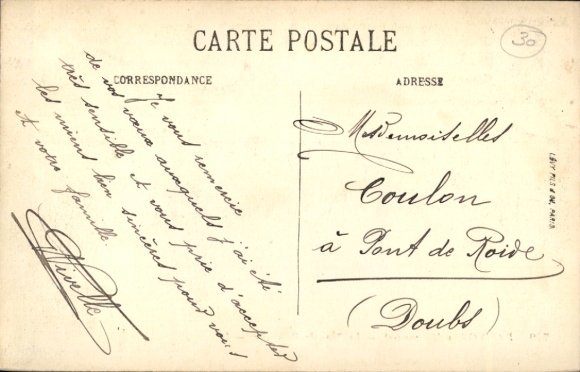 CARTE POSTALE
30
CORRESPONDANCE
ADRESSE
Je vous remercie
de vos vœux auxquels j'ai été
très sensible et vous prie d'accepter
les miens bien sincères pour vous
et votre famille
Mesdemoiselles
Coulon
à Pont de Roide
(Doubs)